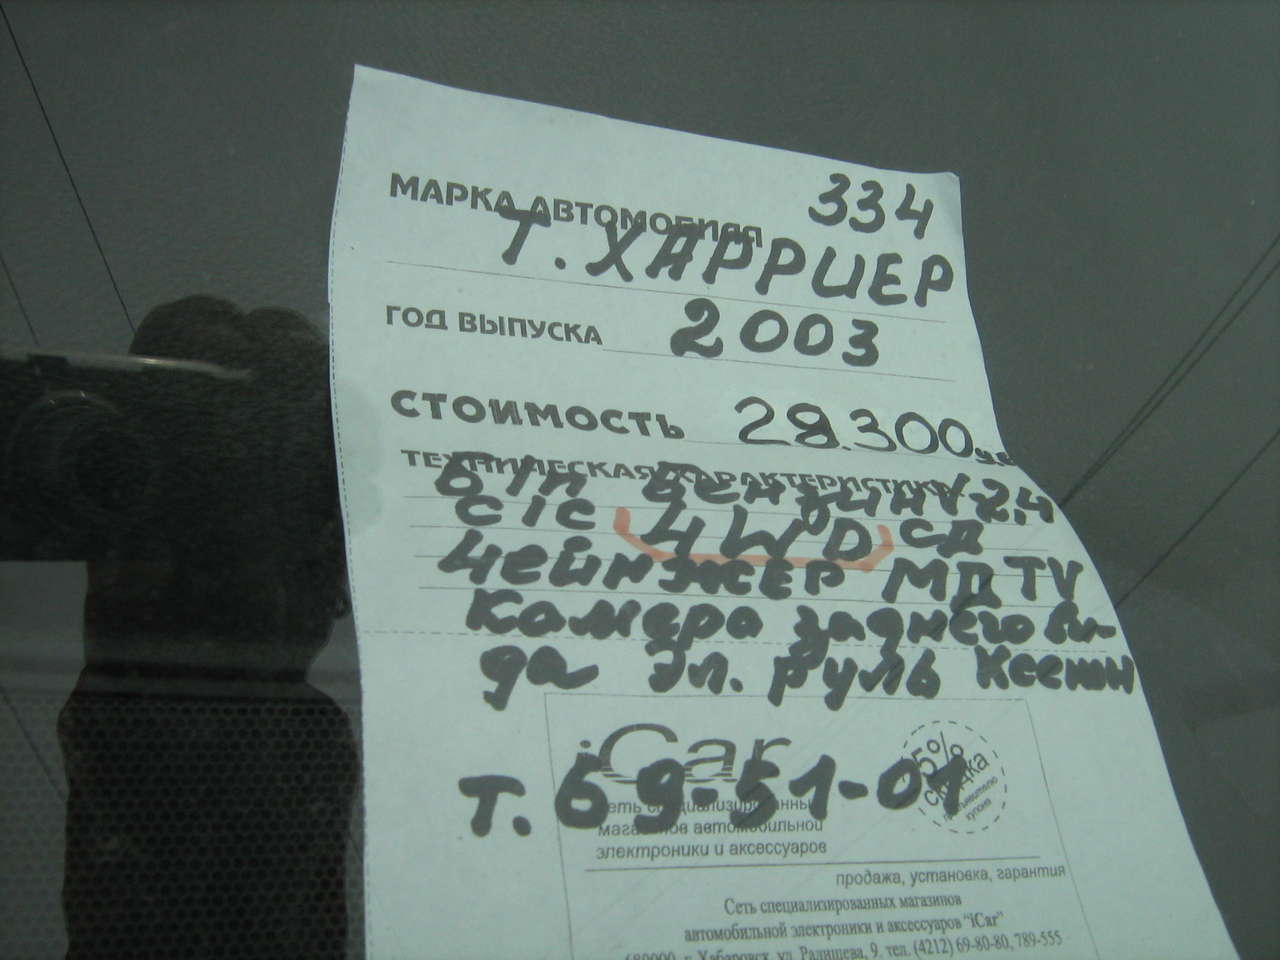 334
МАРКА АВТОМОБИЛЯ
Т. ХАРРИЕР
ГОД ВЫПУСКА 2003
СТОИМОСТЬ 28.300 у.е
ТЕХНИЧЕСКАЯ ХАРАКТЕРИСТИКА
Б/п Бензин V-2,4
с/с 4WD СД
Чейнжер МД TV
Камера заднего ви-
да Эл. руль Ксенон
iCar
5%
скидка
предъявителю
купона
т. 69-51-01
сеть специализированных
магазинов автомобильной
электроники и аксессуаров
продажа, установка, гарантия
Сеть специализированных магазинов
автомобильной электроники и аксессуаров "iCar"
680000, г. Хабаровск, ул. Радищева, 9, тел. (4212) 69-80-80, 789-555